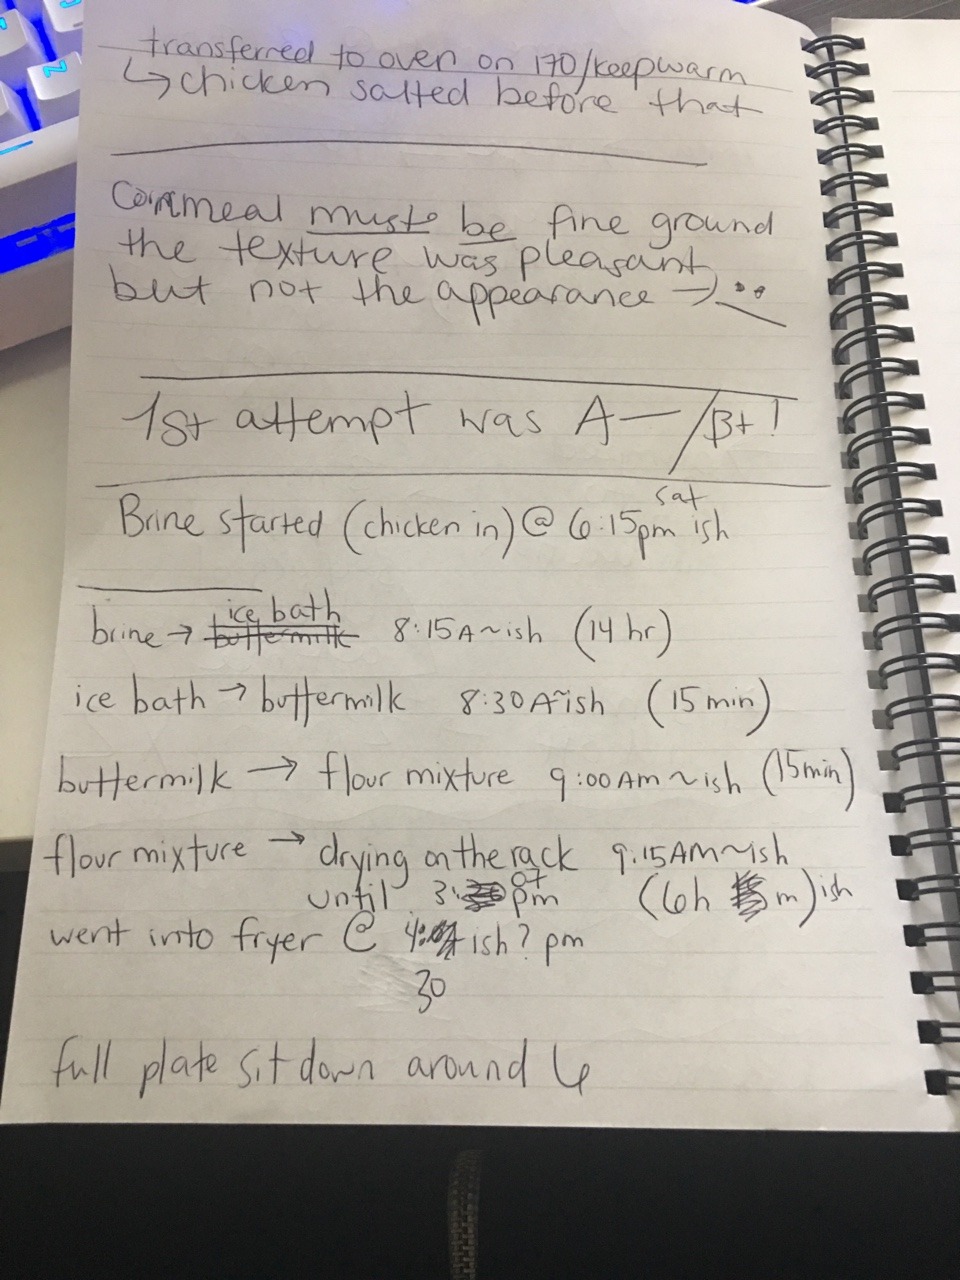 transferred to oven on 170/keepwarm
↳ chicken salted before that
Cornmeal must be fine ground
the texture was pleasant
but not the appearance →
1st attempt was A-/B+!
sat
Brine started (chicken in) @ 6:15pm ish
ice bath
brine → buttermilk 8:15A~ish (14 hr)
ice bath → buttermilk 8:30A~ish (15 min)
buttermilk → flour mixture 9:00AM~ish (15min)
flour mixture → drying on the rack 9:15AM~ish
until 3: pm (6h m)ish
went into fryer @ 4: ish? pm
30
full plate sit down around 6